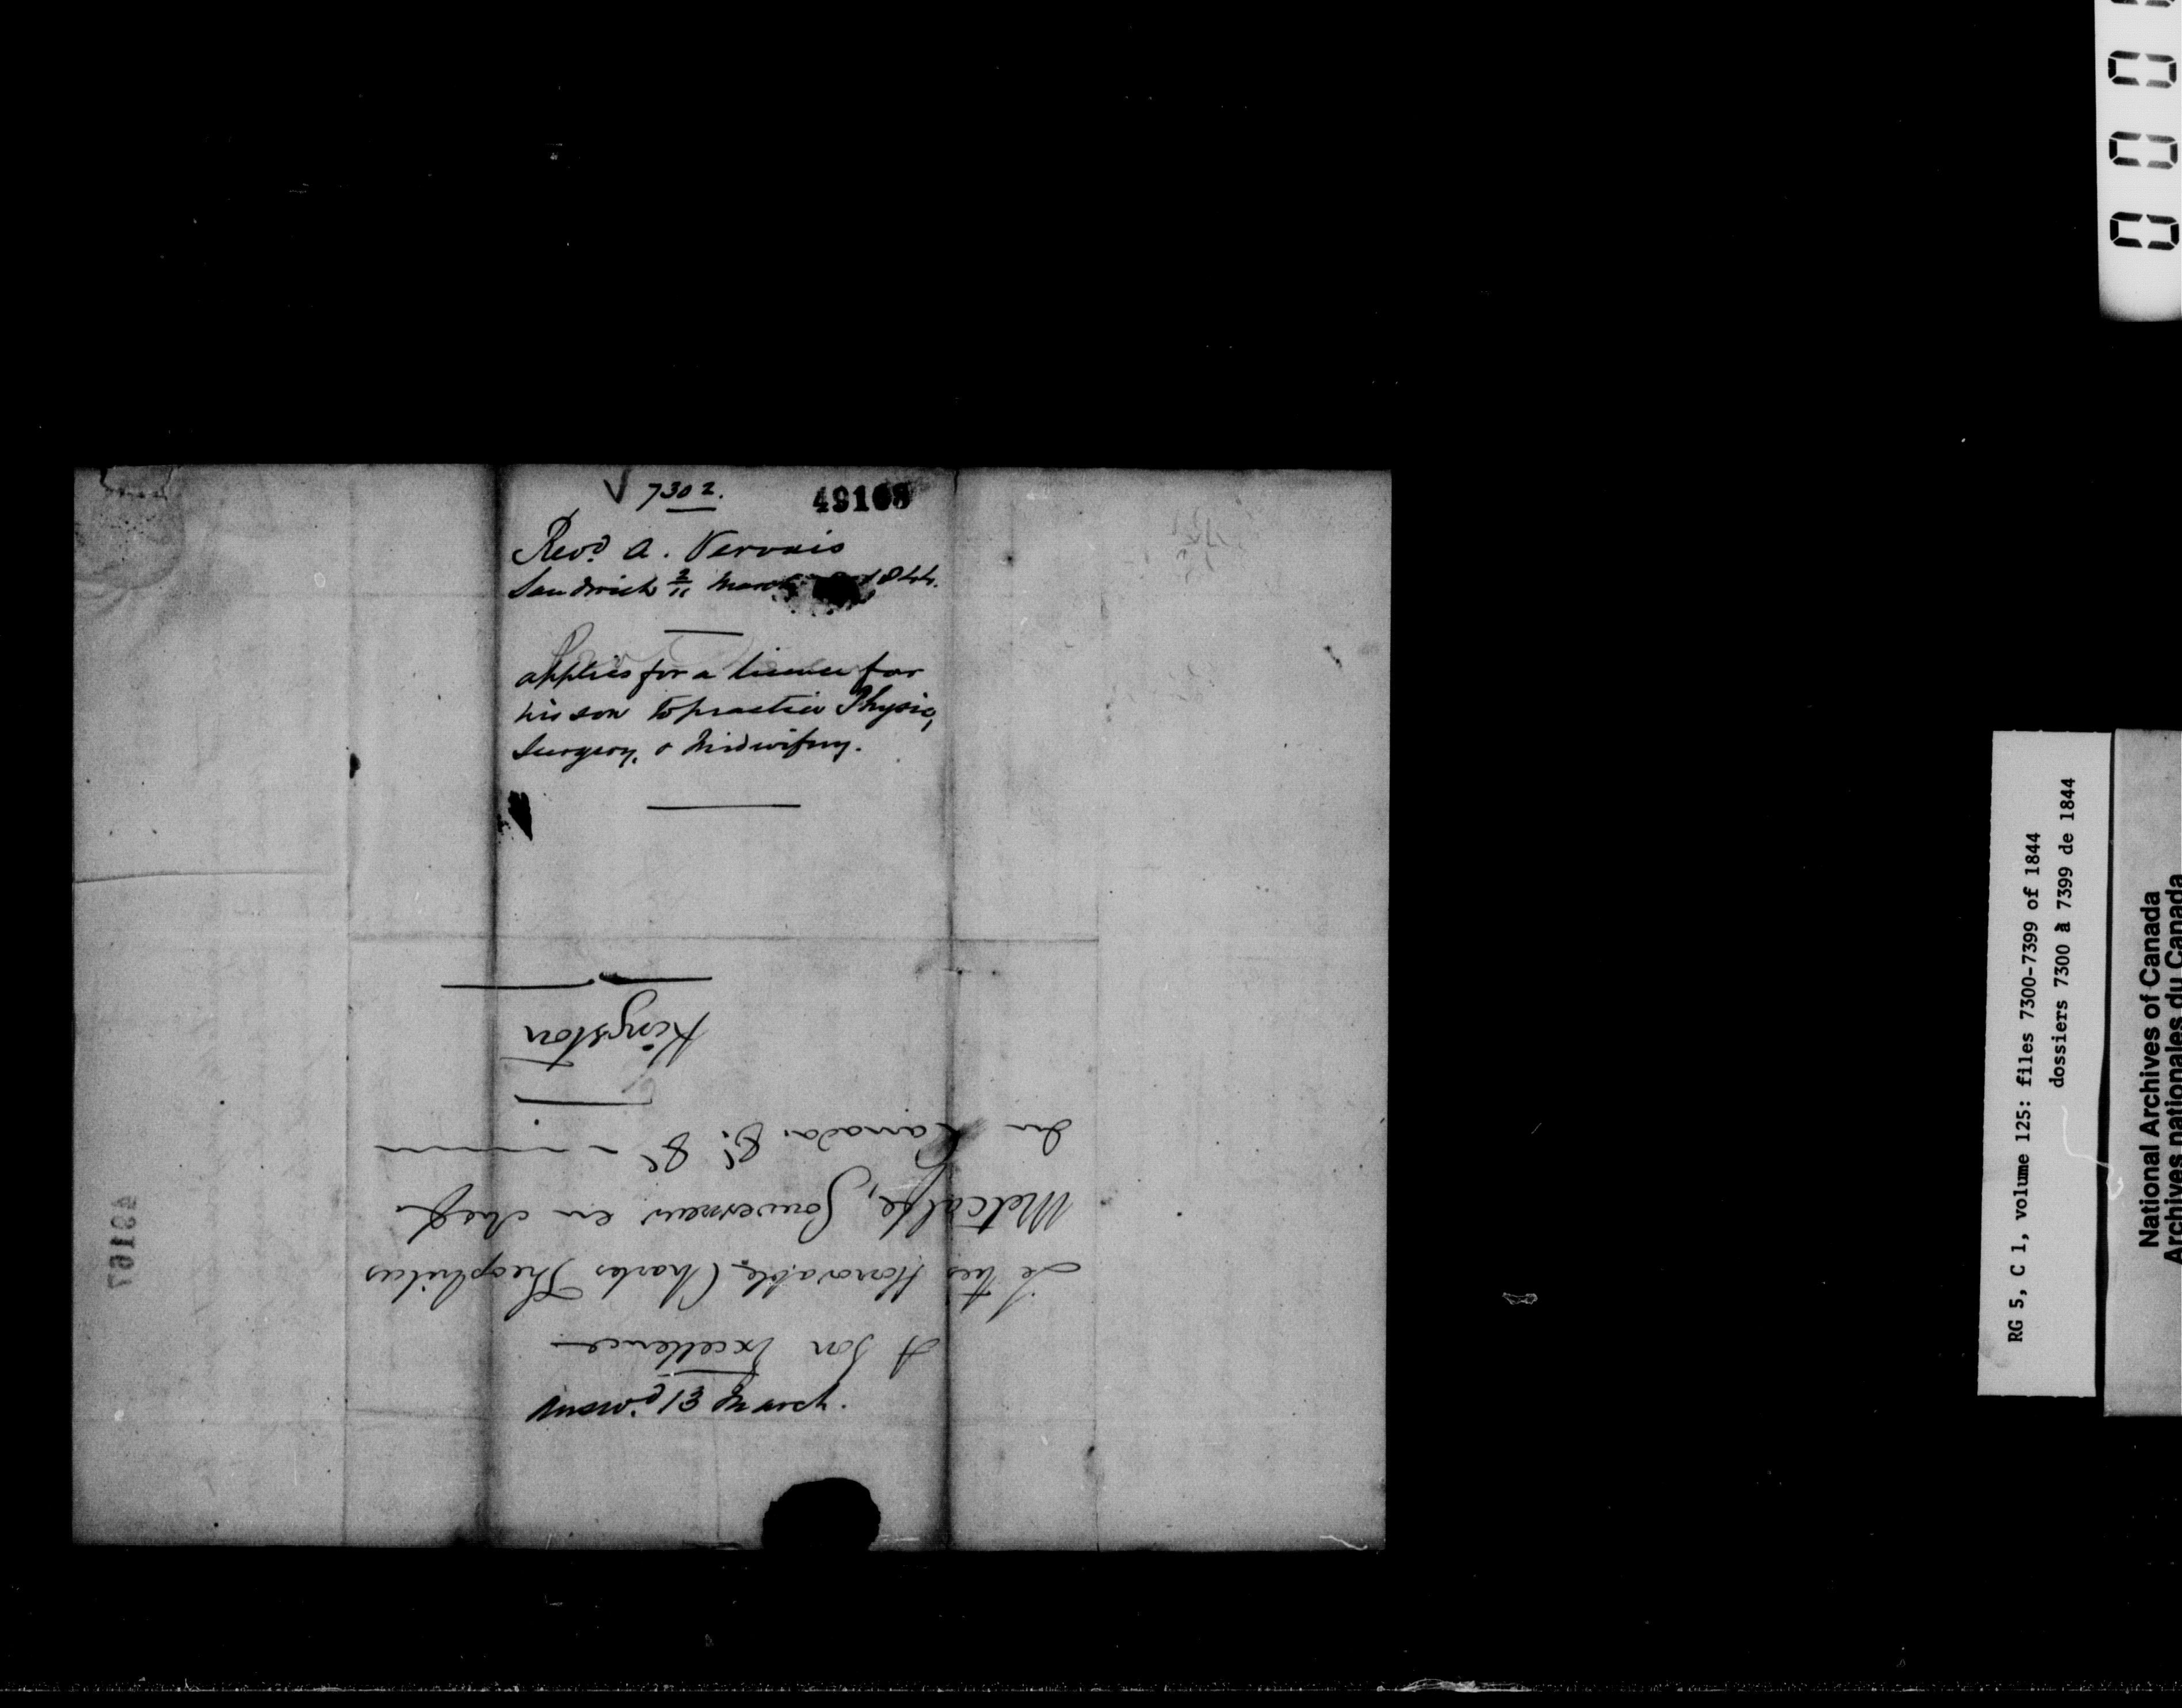 V 7302.
49168
Revd. A. Vervais
Sandwich 2/11 March 1844.
applies for a license for
his son to practice Physic,
Surgery, & Midwifery.
A Son Excellence
Le tres Honorable Charles Theophilus
Metcalfe, Gouverneur en chef
du Canada. &c &c
Kingston
Answd. 13 March.
49167
RG 5, C 1, volume 125: files 7300-7399 of 1844
dossiers 7300 à 7399 de 1844
National Archives of Canada
Archives nationales du Canada